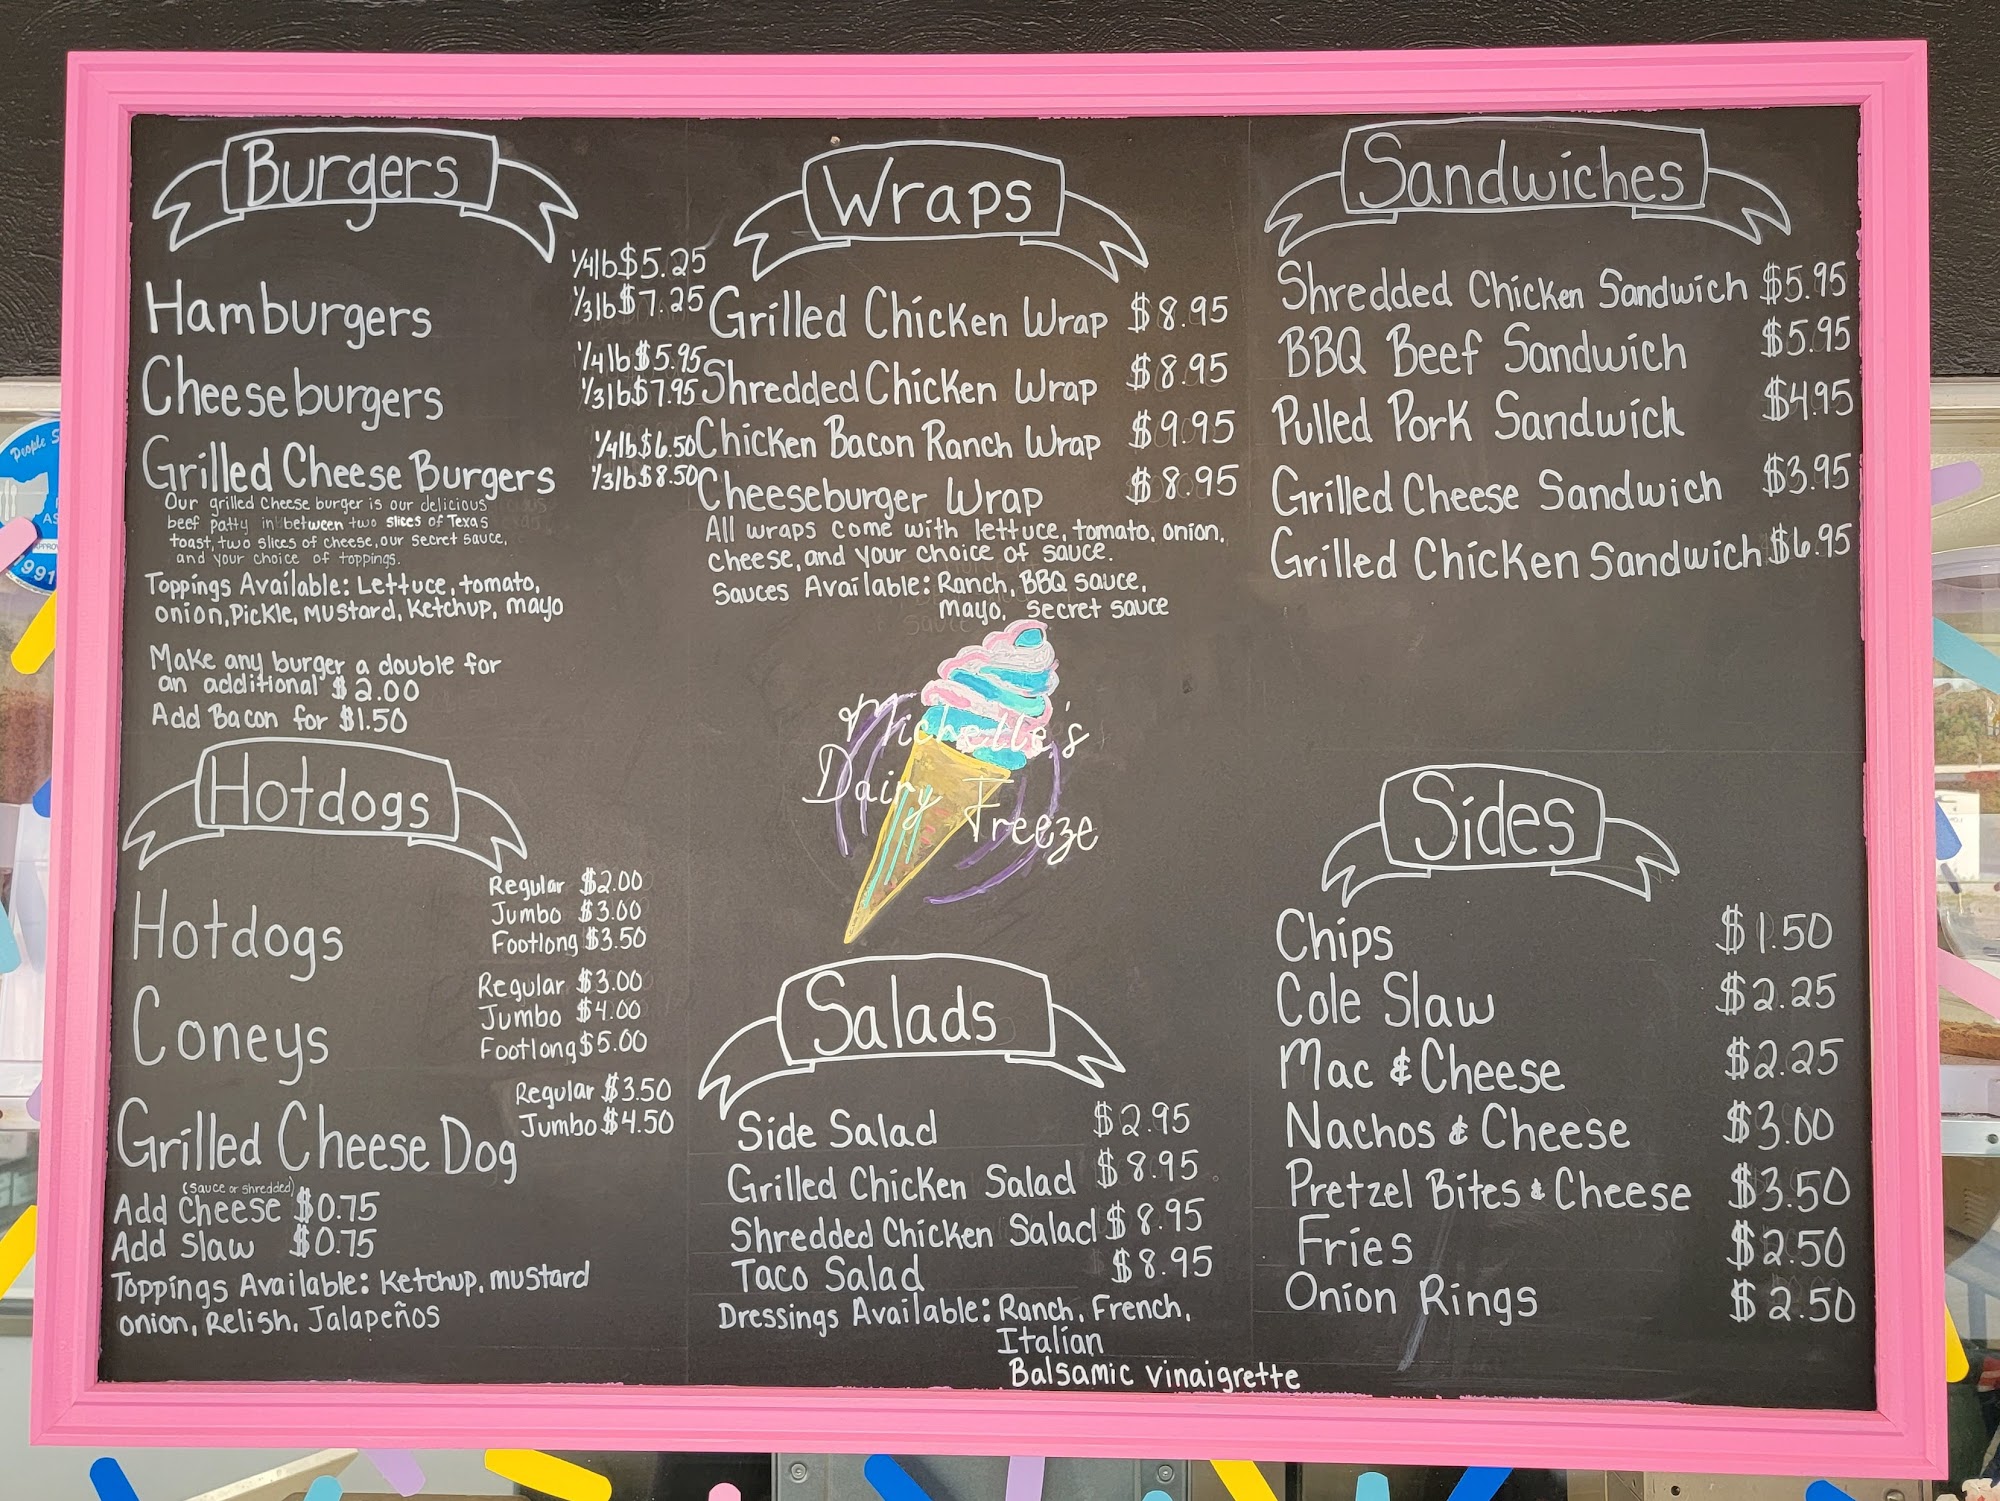 Burgers
Hamburgers
1/4lb $5.25
1/3lb $7.25
Cheeseburgers
1/4lb $5.95
1/3lb $7.95
Grilled Cheese Burgers
1/4lb $6.50
1/3lb $8.50
Our grilled cheese burger is our delicious
beef patty in between two slices of Texas
toast, two slices of cheese, our secret sauce,
and your choice of toppings.
Toppings Available: Lettuce, tomato,
onion, Pickle, Mustard, Ketchup, mayo
Make any burger a double for
an additional $2.00
Add Bacon for $1.50
Hotdogs
Hotdogs
Regular $2.00
Jumbo $3.00
Footlong $3.50
Coneys
Regular $3.00
Jumbo $4.00
Footlong $5.00
Grilled Cheese Dog
Regular $3.50
Jumbo $4.50
(Sauce or shredded)
Add Cheese $0.75
Add Slaw $0.75
Toppings Available: Ketchup, mustard
onion, Relish, Jalapeños
Wraps
Grilled Chicken Wrap $8.95
Shredded Chicken Wrap $8.95
Chicken Bacon Ranch Wrap $9.95
Cheeseburger Wrap $8.95
All wraps come with lettuce, tomato, onion,
cheese, and your choice of sauce.
Sauces Available: Ranch, BBQ sauce,
mayo, secret sauce
Michelle's
Dairy Freeze
Salads
Side Salad $2.95
Grilled Chicken Salad $8.95
Shredded Chicken Salad $8.95
Taco Salad $8.95
Dressings Available: Ranch, French,
Italian
Balsamic vinaigrette
Sandwiches
Shredded Chicken Sandwich $5.95
BBQ Beef Sandwich $5.95
Pulled Pork Sandwich $4.95
Grilled Cheese Sandwich $3.95
Grilled Chicken Sandwich $6.95
Sides
Chips $1.50
Cole Slaw $2.25
Mac & Cheese $2.25
Nachos & Cheese $3.00
Pretzel Bites & Cheese $3.50
Fries $2.50
Onion Rings $2.50
People